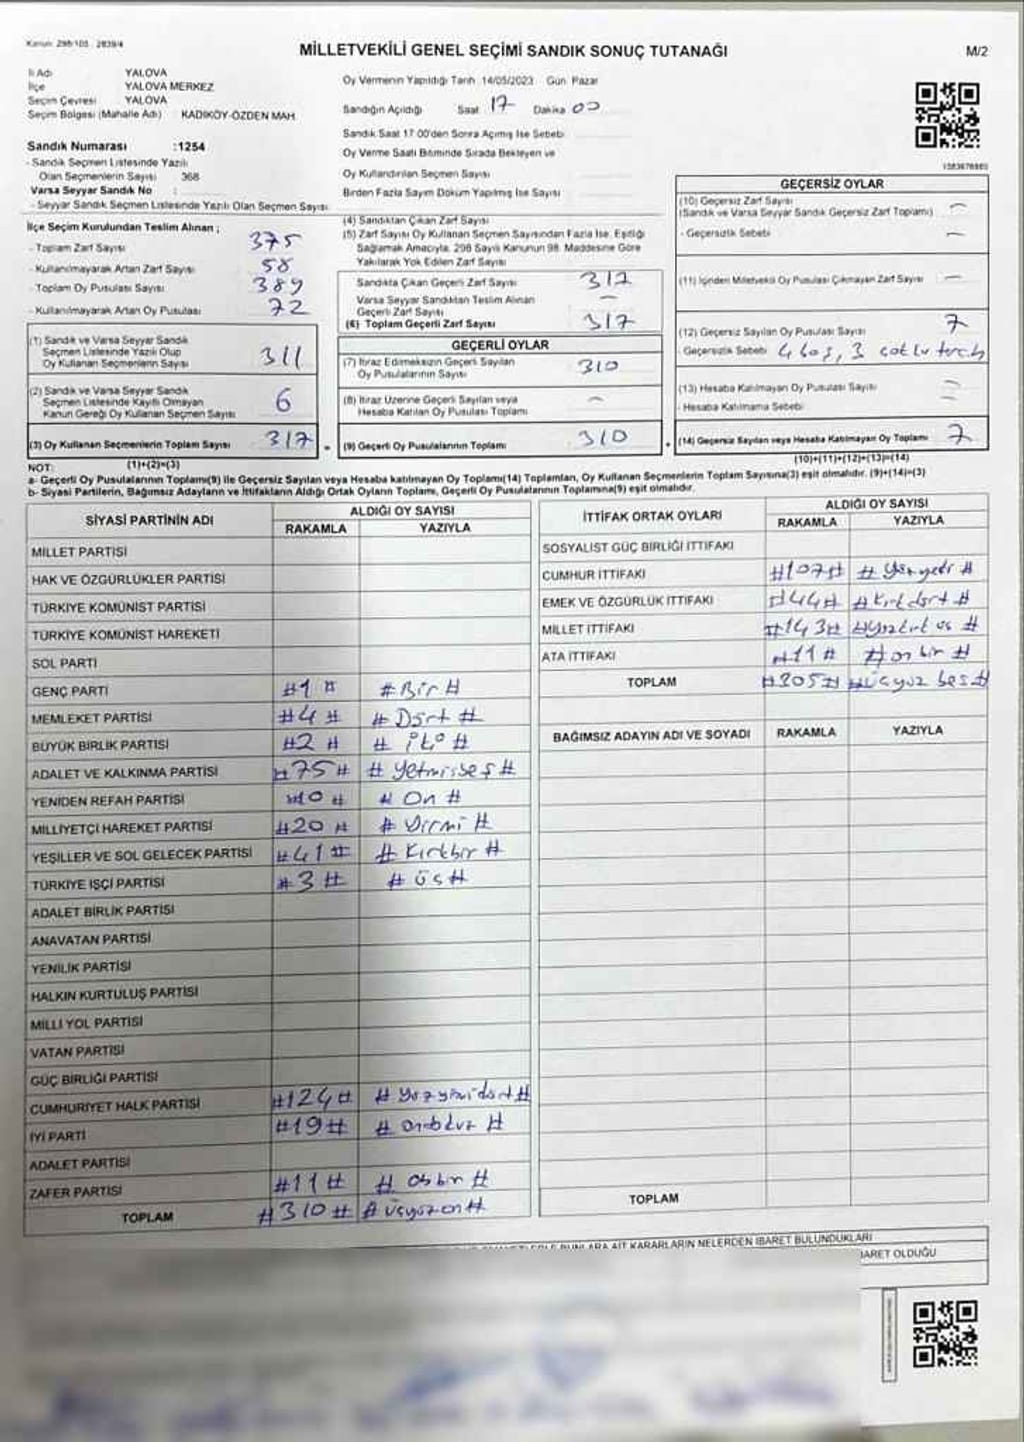 Kanun: 298/105 - 2839/4
MİLLETVEKİLİ GENEL SEÇİMİ SANDIK SONUÇ TUTANAĞI
M/2
İl Adı YALOVA
İlçe YALOVA MERKEZ
Seçim Çevresi YALOVA
Seçim Bölgesi (Mahalle Adı) KADIKÖY-ÖZDEN MAH.
Sandık Numarası :1254
- Sandık Seçmen Listesinde Yazılı
Olan Seçmenlerin Sayısı 368
Varsa Seyyar Sandık No :
- Seyyar Sandık Seçmen Listesinde Yazılı Olan Seçmen Sayısı
Oy Vermenin Yapıldığı Tarih 14/05/2023 Gün Pazar
Sandığın Açıldığı Saat 17 Dakika 00
Sandık Saat 17:00'den Sonra Açılmış İse Sebebi
Oy Verme Saati Bitiminde Sırada Bekleyen ve
Oy Kullandırılan Seçmen Sayısı
Birden Fazla Sayım Döküm Yapılmış İse Sayısı
İlçe Seçim Kurulundan Teslim Alınan ;
- Toplam Zarf Sayısı 375
- Kullanılmayarak Artan Zarf Sayısı 58
- Toplam Oy Pusulası Sayısı 389
- Kullanılmayarak Artan Oy Pusulası 72
(1) Sandık ve Varsa Seyyar Sandık
Seçmen Listesinde Yazılı Olup
Oy Kullanan Seçmenlerin Sayısı 311
(2) Sandık ve Varsa Seyyar Sandık
Seçmen Listesinde Kayıtlı Olmayan
Kanun Gereği Oy Kullanan Seçmen Sayısı 6
(3) Oy Kullanan Seçmenlerin Toplam Sayısı 317
(1)+(2)=(3)
(4) Sandıktan Çıkan Zarf Sayısı
(5) Zarf Sayısı Oy Kullanan Seçmen Sayısından Fazla İse, Eşitliği
Sağlamak Amacıyla, 298 Sayılı Kanunun 98. Maddesine Göre
Yakılarak Yok Edilen Zarf Sayısı
Sandıkta Çıkan Geçerli Zarf Sayısı 317
Varsa Seyyar Sandıktan Teslim Alınan
Geçerli Zarf Sayısı —
(6) Toplam Geçerli Zarf Sayısı 317
GEÇERLİ OYLAR
(7) İtiraz Edilmeksizin Geçerli Sayılan
Oy Pusulalarının Sayısı 310
(8) İtiraz Üzerine Geçerli Sayılan veya
Hesaba Katılan Oy Pusulası Toplamı —
(9) Geçerli Oy Pusulalarının Toplamı 310
GEÇERSİZ OYLAR
(10) Geçersiz Zarf Sayısı
(Sandık ve Varsa Seyyar Sandık Geçersiz Zarf Toplamı) —
- Geçersizlik Sebebi —
(11) İçinden Milletvekili Oy Pusulası Çıkmayan Zarf Sayısı —
(12) Geçersiz Sayılan Oy Pusulası Sayısı 7
- Geçersizlik Sebebi 4 boş, 3 çoklu tercih
(13) Hesaba Katılmayan Oy Pusulası Sayısı —
- Hesaba Katılmama Sebebi —
(14) Geçersiz Sayılan veya Hesaba Katılmayan Oy Toplamı 7
(10)+(11)+(12)+(13)=(14)
NOT:
a- Geçerli Oy Pusulalarının Toplamı(9) ile Geçersiz Sayılan veya Hesaba katılmayan Oy Toplamı(14) Toplamları, Oy Kullanan Seçmenlerin Toplam Sayısına(3) eşit olmalıdır. (9)+(14)=(3)
b- Siyasi Partilerin, Bağımsız Adayların ve İttifakların Aldığı Ortak Oyların Toplamı, Geçerli Oy Pusulalarının Toplamına(9) eşit olmalıdır.
SİYASİ PARTİNİN ADI
ALDIĞI OY SAYISI
RAKAMLA YAZIYLA
MİLLET PARTİSİ
HAK VE ÖZGÜRLÜKLER PARTİSİ
TÜRKİYE KOMÜNİST PARTİSİ
TÜRKİYE KOMÜNİST HAREKETİ
SOL PARTİ
GENÇ PARTİ #1# #Bir#
MEMLEKET PARTİSİ #4# #Dört#
BÜYÜK BİRLİK PARTİSİ #2# #iki#
ADALET VE KALKINMA PARTİSİ #75# #Yetmişbeş#
YENİDEN REFAH PARTİSİ #10# #On#
MİLLİYETÇİ HAREKET PARTİSİ #20# #Yirmi#
YEŞİLLER VE SOL GELECEK PARTİSİ #41# #Kırkbir#
TÜRKİYE İŞÇİ PARTİSİ #3# #üç#
ADALET BİRLİK PARTİSİ
ANAVATAN PARTİSİ
YENİLİK PARTİSİ
HALKIN KURTULUŞ PARTİSİ
MİLLİ YOL PARTİSİ
VATAN PARTİSİ
GÜÇ BİRLİĞİ PARTİSİ
CUMHURİYET HALK PARTİSİ #124# #Yüzyirmidört#
İYİ PARTİ #19# #ondokuz#
ADALET PARTİSİ
ZAFER PARTİSİ #11# #onbir#
TOPLAM #310# #üçyüzon#
İTTİFAK ORTAK OYLARI
ALDIĞI OY SAYISI
RAKAMLA YAZIYLA
SOSYALİST GÜÇ BİRLİĞİ İTTİFAKI
CUMHUR İTTİFAKI #107# #Yüzyedi#
EMEK VE ÖZGÜRLÜK İTTİFAKI #44# #Kırkdört#
MİLLET İTTİFAKI #143# #Yüzkırküç#
ATA İTTİFAKI #11# #onbir#
TOPLAM #305# #üçyüz beş#
BAĞIMSIZ ADAYIN ADI VE SOYADI RAKAMLA YAZIYLA
TOPLAM
BUNLARA AİT KARARLARIN NELERDEN İBARET BULUNDUKLARI
OLDUĞU